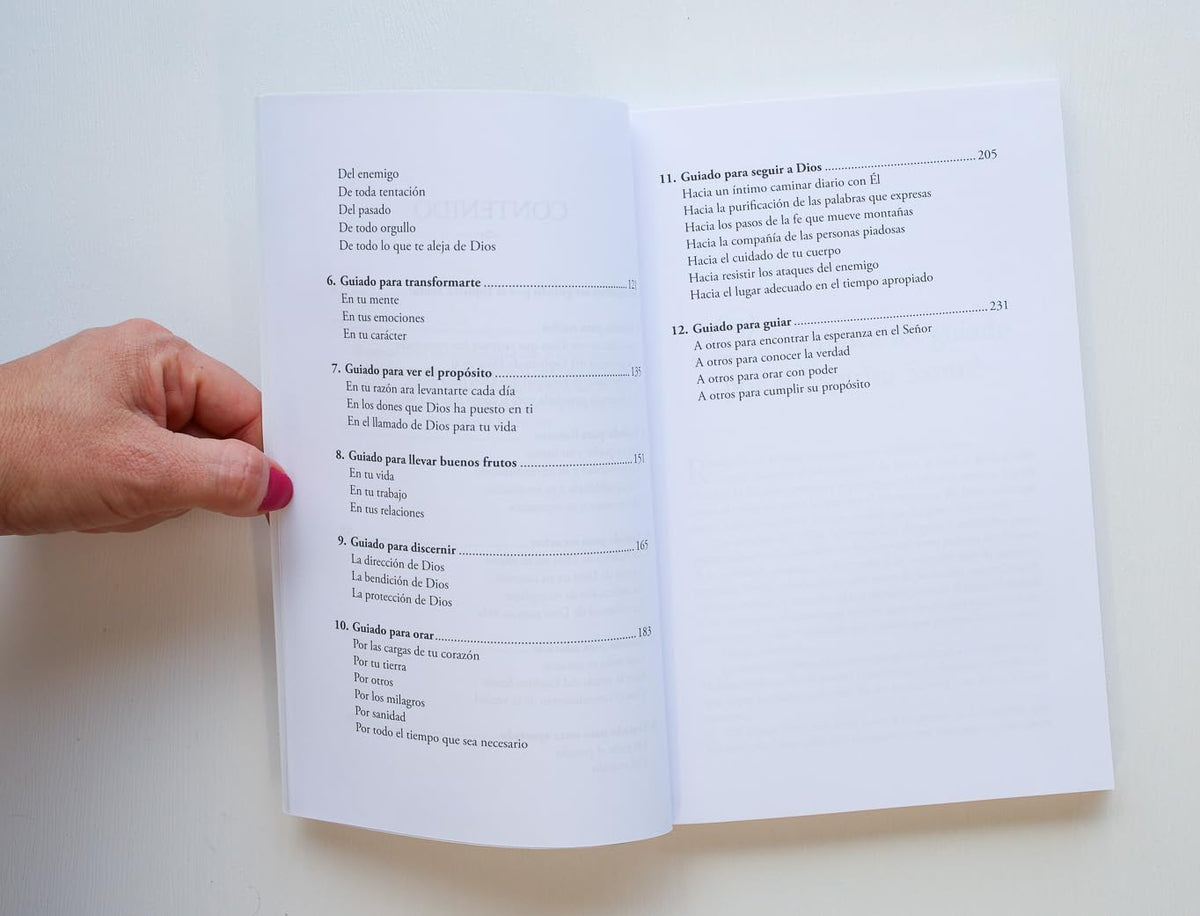 Del enemigo
De toda tentación
Del pasado
De todo orgullo
De todo lo que te aleja de Dios
6. Guiado para transformarte
En tu mente
En tus emociones
En tu carácter
7. Guiado para ver el propósito ........ 135
En tu razón ara levantarte cada día
En los dones que Dios ha puesto en ti
En el llamado de Dios para tu vida
8. Guiado para llevar buenos frutos ........ 151
En tu vida
En tu trabajo
En tus relaciones
9. Guiado para discernir ........ 165
La dirección de Dios
La bendición de Dios
La protección de Dios
10. Guiado para orar ........ 183
Por las cargas de tu corazón
Por tu tierra
Por otros
Por los milagros
Por sanidad
Por todo el tiempo que sea necesario
11. Guiado para seguir a Dios ........ 205
Hacia un íntimo caminar diario con Él
Hacia la purificación de las palabras que expresas
Hacia los pasos de la fe que mueve montañas
Hacia la compañía de las personas piadosas
Hacia el cuidado de tu cuerpo
Hacia resistir los ataques del enemigo
Hacia el lugar adecuado en el tiempo apropiado
12. Guiado para guiar ........ 231
A otros para encontrar la esperanza en el Señor
A otros para conocer la verdad
A otros para orar con poder
A otros para cumplir su propósito